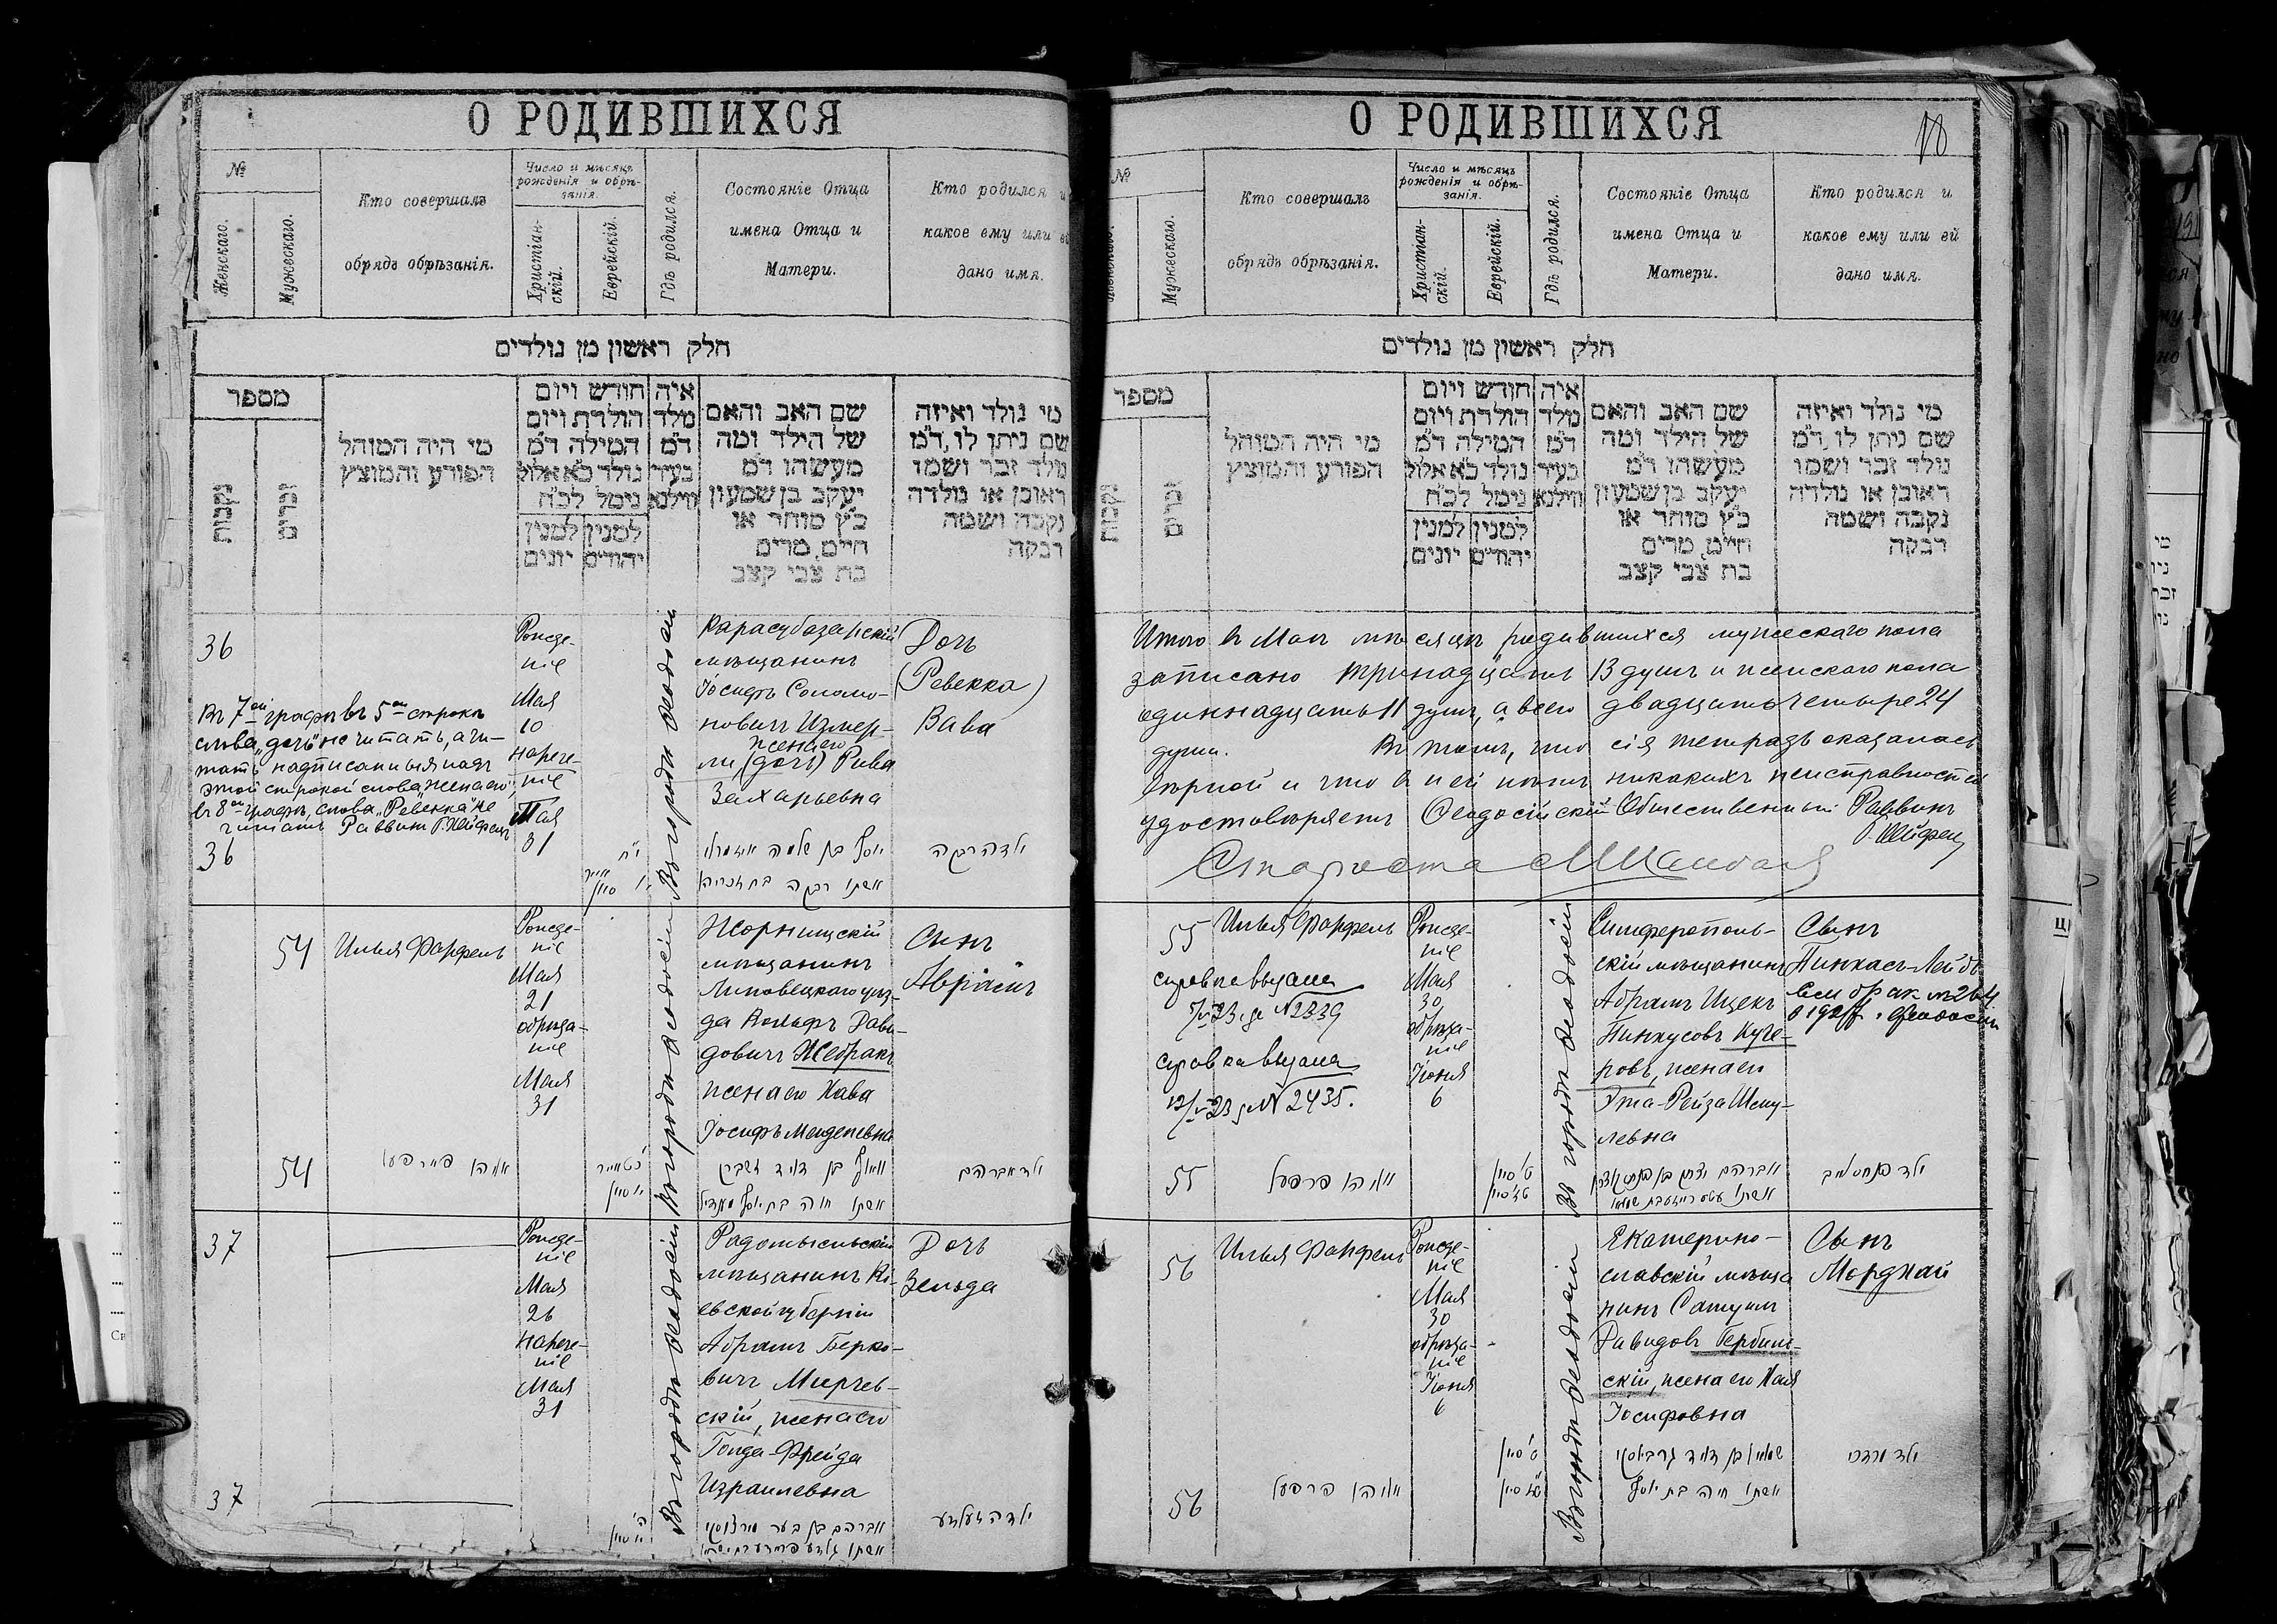 О РОДИВШИХСЯ
№
Женскаго.
Мужескаго.
Кто совершалъ
обрядъ обрѣзанія.
Число и мѣсяцъ
рожденія и обрѣ-
занія.
Христіан-
скій.
Еврейскій.
Гдѣ родился.
Состояніе Отца
имена Отца и
Матери.
Кто родился и
какое ему или ей
дано имя.
חלק ראשון מן נולדים
מספר
נקבות
זכרים
מי היה המוהל
הפורע והמוצץ
חודש ויום
הולדת ויום
המילה ד״מ
נולד כ״א אלול
נימל לכ״ח
למנין למנין
יהודים יונים
איה
מלד
ד״מ
בעיר
ווילנא
שם האב והאם
של הילד ומה
מעשהו ד״מ
יעקב בן שמעון
כ״ץ סוחר או
חייט, מרים
בת צבי קצב
מי נולד ואיזה
שם ניתן לו, ד״מ
נולד זכר ושמו
ראובן או נולדה
נקבה ושמה
רבקה
36
Въ 7ой графѣ въ 5ой строкѣ
слова „дочь" не читать, а чи-
тать надписанныя надъ
этой строкой слова „жена его",
въ 8ой графѣ, слова „Ревекка" не
читать Раввинъ
36
Рожде-
ніе
Мая
10
нарече-
ніе
Мая
31
י״ח
אייר
סיון
Въ городѣ Ѳеодосіи
Карасубазарскій
мѣщанинъ
Іосифъ Соломо-
новичъ Измер-
жена его
ли (дочь) Рива
Захарьевна
יוסף בן שלמה איזמרלי
אשתו רבקה בת זכריה
Дочь
(Ревекка)
Вава
ילדה רבקה
54
Илья Фарфель
Рожде-
ніе
Мая
21
обрѣза-
ніе
Мая
31
Въ городѣ Ѳеодосіи
Жорнищскій
мѣщанинъ
Липовецкаго уѣз-
да Вольфъ Дави-
довичъ Жебракъ
жена его Хава
Іосифъ Менделевна
Сынъ
Авраамъ
54
אליהו פארפעל
כ״ט אייר
סיון
וואלף בן דוד זשבראק
אשתו חוה בת יוסף מענדיל
ילד אברהם
37
Рожде-
ніе
Мая
26
нарече-
ніе
Мая
31
Въ городѣ Ѳеодосіи
Радомысльскій
мѣщанинъ Кі-
евской губерніи
Абрамъ Берко-
вичъ Мирчев-
скій, жена его
Голда-Фрейда
Израилевна
Дочь
Зельда
37
ה׳
סיון
אברהם בן בער מירצווסקי
אשתו גולדע פריידע בת ישראל
ילדה זעלדע
О РОДИВШИХСЯ
18
№
Женскаго.
Мужескаго.
Кто совершалъ
обрядъ обрѣзанія.
Число и мѣсяцъ
рожденія и обрѣ-
занія.
Христіан-
скій.
Еврейскій.
Гдѣ родился.
Состояніе Отца
имена Отца и
Матери.
Кто родился и
какое ему или ей
дано имя.
חלק ראשון מן נולדים
מספר
נקבות
זכרים
מי היה המוהל
הפורע והמוצץ
חודש ויום
הולדת ויום
המילה ד״מ
נולד כ״א אלול
נימל לכ״ח
למנין למנין
יהודים יונים
איה
מלד
ד״מ
בעיר
ווילנא
שם האב והאם
של הילד ומה
מעשהו ד״מ
יעקב בן שמעון
כ״ץ סוחר או
חייט, מרים
בת צבי קצב
מי נולד ואיזה
שם ניתן לו, ד״מ
נולד זכר ושמו
ראובן או נולדה
נקבה ושמה
רבקה
Итого въ Маѣ мѣсяцѣ родившихся мужескаго пола
записано тринадцать 13 душъ и женскаго пола
одиннадцать 11 душъ, а всего двадцать четыре 24
души. Въ томъ, что сія тетрадь оказалась
вѣрной и что въ ней нѣтъ никакихъ неисправностей
удостовѣряетъ Ѳеодосійскій Общественный Раввинъ
Староста
55
Илья Фарфель
справка выдана
23 г. № 2339
справка выдана
12/V 23 г № 2435.
Рожде-
ніе
Мая
30
обрѣза-
ніе
Іюня
6
Въ городѣ Ѳеодосіи
Симферополь-
скій мѣщанинъ
Абрамъ Ицекъ
Пинкусовъ Куче-
ровъ, жена его
Эта-Рейза Шму-
левна
Сынъ
Пинхасъ-Лейбъ
55
אליהו פרפעל
ט׳ סיון
ט״ז סיון
אברהם יצחק בן פנחס קוצרוב
אשתו עטא רייזע בת שמואל
ילד פנחס ליב
56
Илья Фарфель
Рожде-
ніе
Мая
30
обрѣза-
ніе
Іюня
6
Въ городѣ Ѳеодосіи
Екатерино-
славскій мѣща
нинъ Самуилъ
Давидовъ Гербиль-
скій, жена его Хая
Іосифовна
Сынъ
Мордхай
56
אליהו פרפעל
ט׳ סיון
ט״ז סיון
שמואל בן דוד גרבילסקי
אשתו חיה בת יוסף
ילד מרדכי